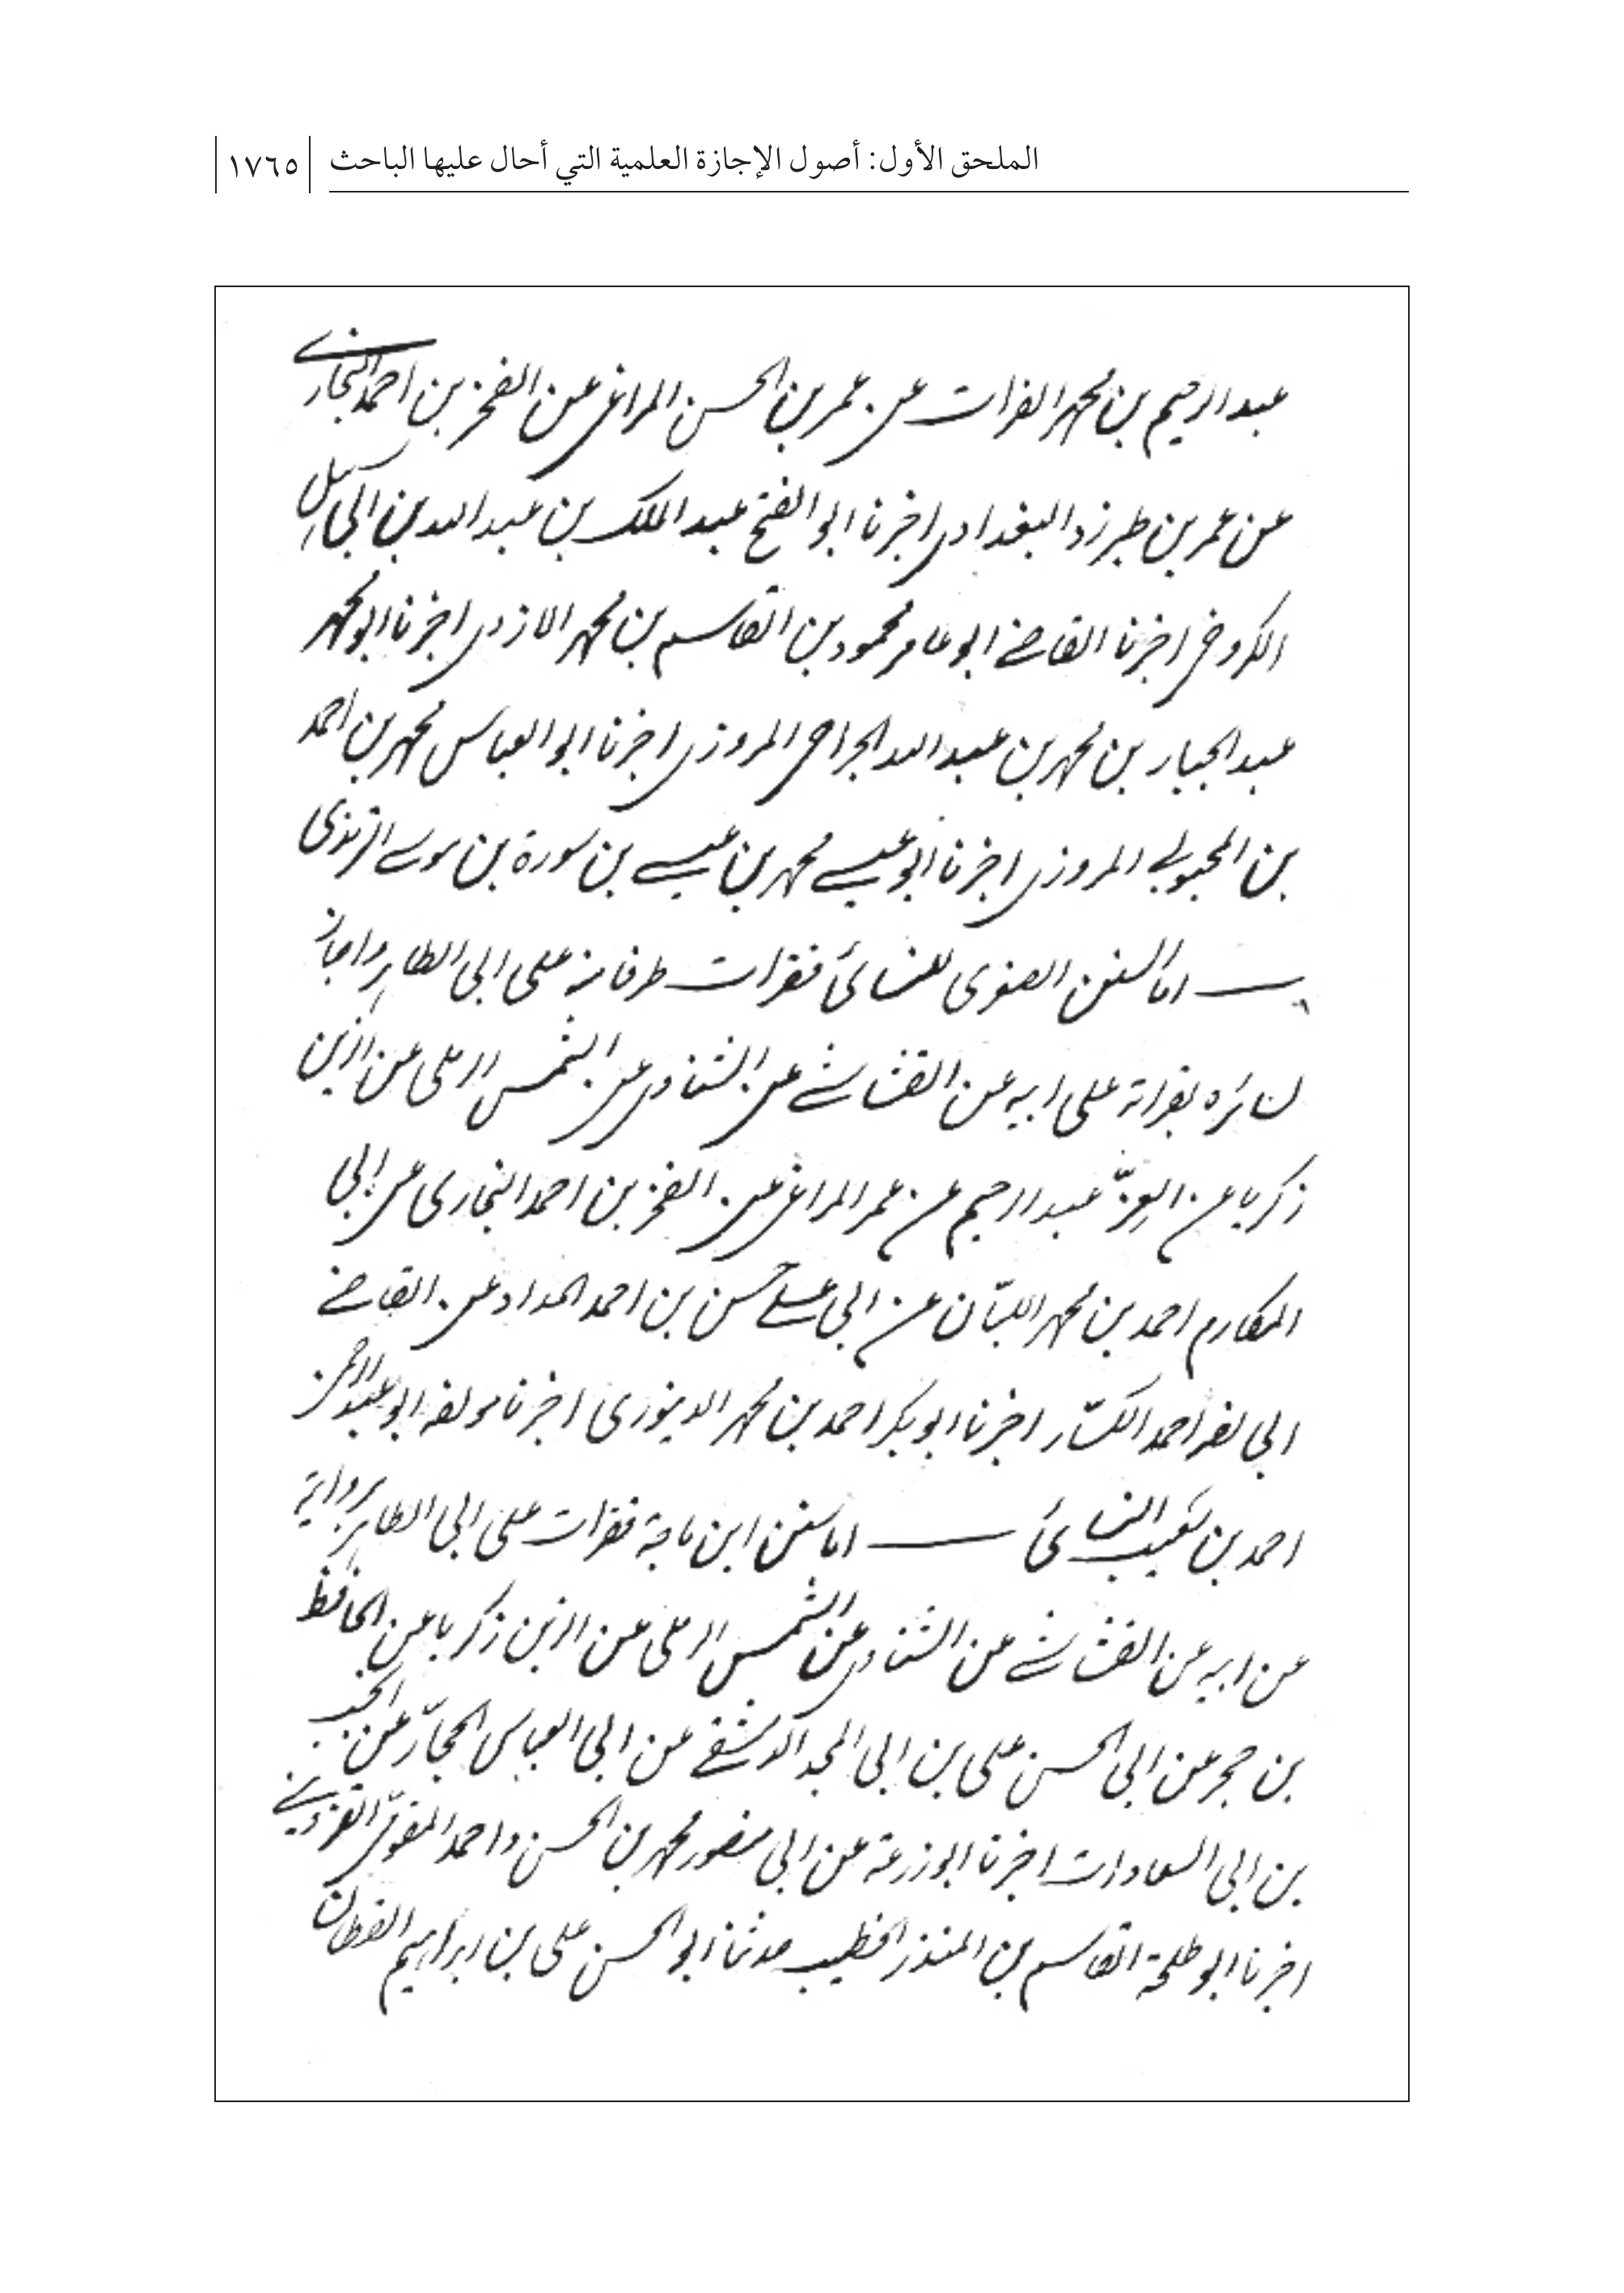 الملحق الأول: أصول الإجازة العلمية التي أحال عليها الباحث ١٧٦٥
عبد الرحيم بن محمد الفرات عن عمر بن الحسن المراغي عن الفخر بن احمد البخاري
عن عمر بن طبرزد البغدادي اخبرنا ابو الفتح عبد الملك بن عبد الله بن ابي سهل
الكروخي اخبرنا القاضي ابو عامر محمود بن القاسم بن محمد الازدي اخبرنا ابو محمد
عبد الجبار بن محمد بن عبد الله الجراحي المروزي اخبرنا ابو العباس محمد بن احمد
بن المحبوبي المروزي اخبرنا ابو عيسى محمد بن عيسى بن سورة بن موسى الترمذى
اما السنن الصغرى للنسائى فقرات طرفا منه على ابي الطاهر واجاز
لسائره بقراته على ابيه عن القشاشي عن الشناوي عن الشمس الرملي عن الزين
زكريا عن العزّ عبد الرحيم عن عمر المراغي عن الفخر بن احمد البخارى عن ابي
المكارم احمد بن محمد اللبّان عن ابي علي حسن بن احمد الحداد عن القاضي
ابي نصر احمد الكسّار اخبرنا ابو بكر احمد بن محمد الدينورى اخبرنا مولفه ابو عبد الرحمن
احمد بن شعيب النسائى اما سنن ابن ماجة فقرات على ابي الطاهر بروايته
عن ابيه عن القشاشي عن الشناوي عن الشمس الرملي عن الزين زكريا عن الحافظ
بن حجر عن ابي الحسن علي بن ابي المجد الدمشقي عن ابي العباس الحجّار عن انجب
بن ابي السعادات اخبرنا ابو زرعة عن ابي منصور محمد بن الحسن واحمد المقومّي القزويني
اخبرنا ابو طلحة القاسم بن المنذر الخطيب حدثنا ابو الحسن علي بن ابراهيم القطان